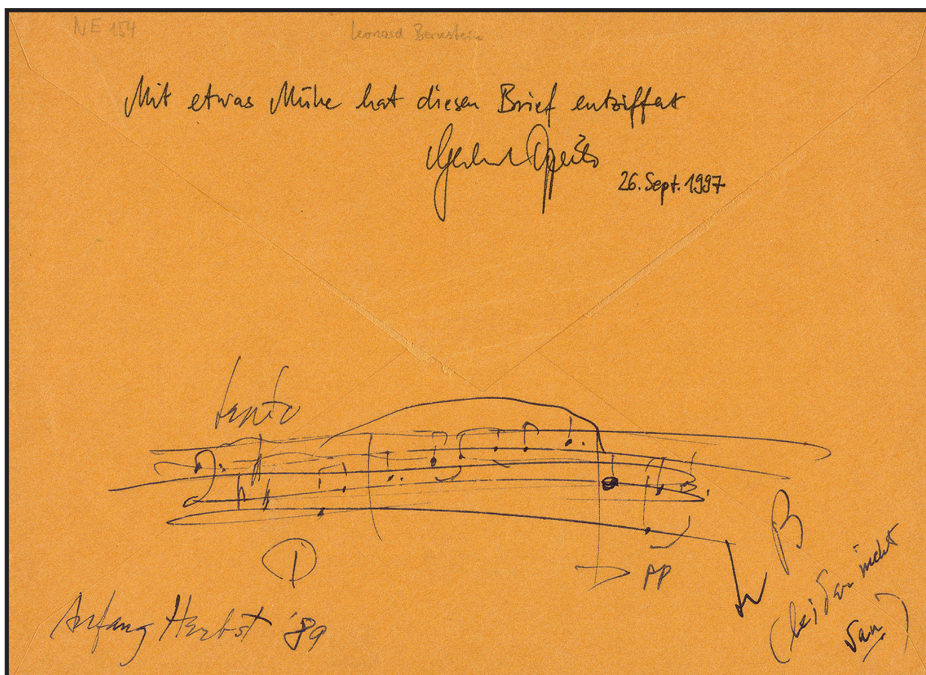 NE 154 Leonard Bernstein
Mit etwas Mühe hat diesen Brief entziffert
Gerhard Oppitz
26. Sept. 1997
lento
pp
L B
(leider nicht
van)
Anfang Herbst '89